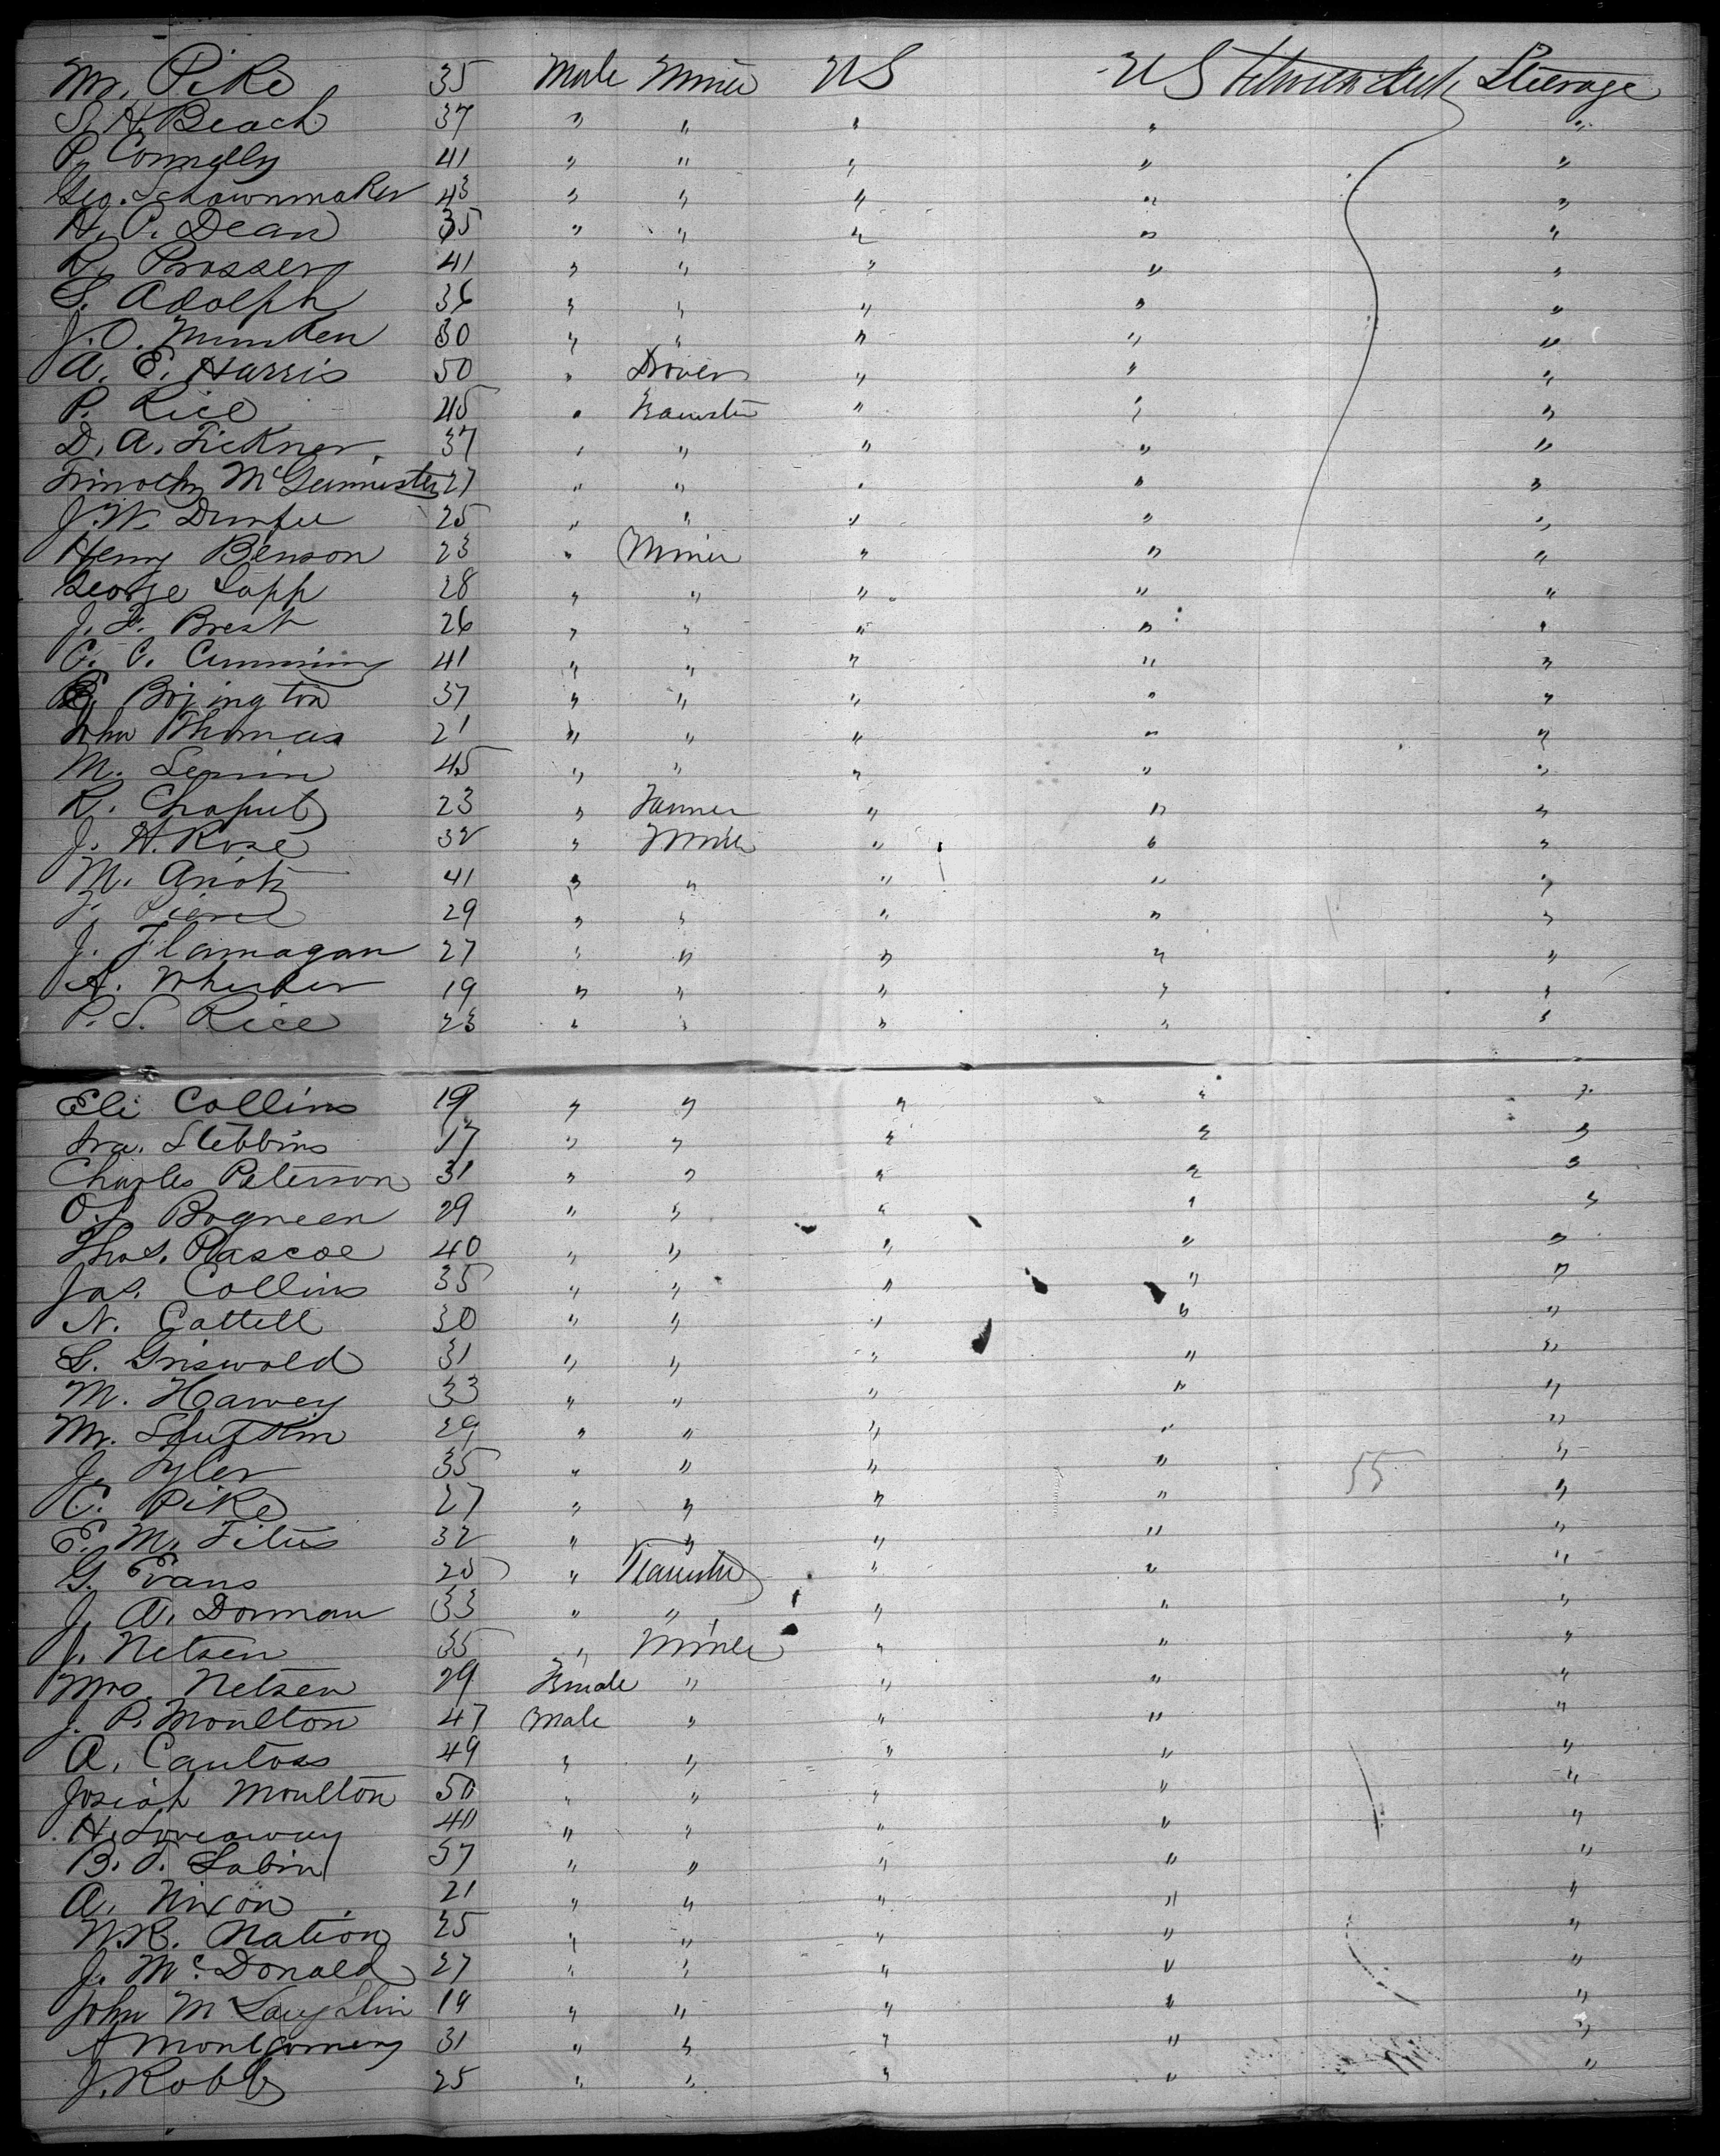 M. Pike 35 Male Miner US US Between decks Steerage
S. H. Beach 37 " " " " "
P. Connelly 41 " " " " "
Geo. Schownmaker 43 " " " " "
H. P. Dean 35 " " " " "
R. Prosser 41 " " " " "
S. Adolph 36 " " " " "
J. O. 30 " " " " "
A. E. Harris 50 " Drover " " "
P. Rice 45 " Teamster " " "
D. A. Tickner 37 " " " " "
Timothy 27 " " " " "
J. W. 25 " " " " "
Henry Benson 23 " Miner " " "
George Lapp 28 " " " " "
J. F. Brest 26 " " " " "
C. C. Cumming 41 " " " " "
Bojington 37 " " " " "
John Thomas 21 " " " " "
M. 45 " " " " "
R. Chaput 23 " Farmer " " "
J. H. Rose 32 " Miner " " "
M. 41 " " " " "
J. Pierce 29 " " " " "
J. Flannagan 27 " " " " "
A. Wheeler 19 " " " " "
P. S. Rice 23 " " " " "
Eli Collins 19 " " " " "
Ira. Stebbins 17 " " " " "
Charles Peterson 31 " " " " "
O. L. Bogreen 29 " " " " "
Thos. Pascoe 40 " " " " "
Jas. Collins 35 " " " " "
N. Cattell 30 " " " " "
L. Griswold 31 " " " " "
M. Harvey 33 " " " " "
M. 29 " " " " "
J. Tyler 35 " " " " 55 "
C. Pike 27 " " " " "
E. M. Titus 32 " " " " "
G. Evans 25 " Teamster " " "
J. A. Dorman 33 " " " " "
J. Netzen 35 " Miner " " "
Mrs. Netzen 29 Female " " " "
J. P. Moulton 47 Male " " " "
A. 49 " " " " "
Josiah Moulton 50 " " " " "
H. Loveaway 40 " " " " "
B. F. Sabin 37 " " " " "
A. Nixon 21 " " " " "
N. R. Nation 25 " " " " "
J. McDonald 27 " " " " "
John McLaughlin 19 " " " " "
A Montgomery 31 " " " " "
J. Robb 25 " " " " "